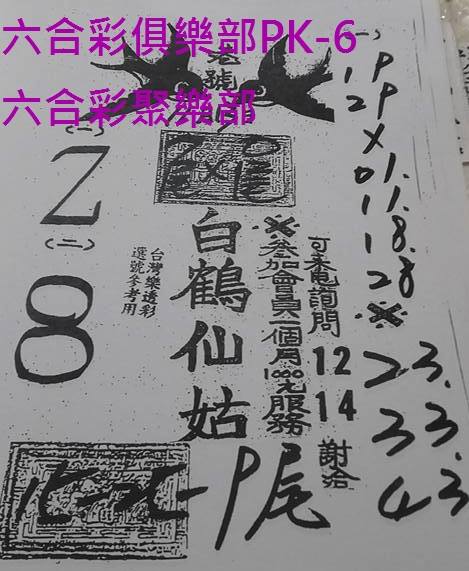 六合彩俱樂部PK-6
六合彩聚樂部
(一)
Z
(二)
8
號
台灣樂透彩
選號參考用
白鶴仙姑
可來電詢問
※叄加會員一個月1000元服務
12
14
謝洽
(一)
1P
2P
X
01.
11.
18.
28
※
23.
33.
43
尾